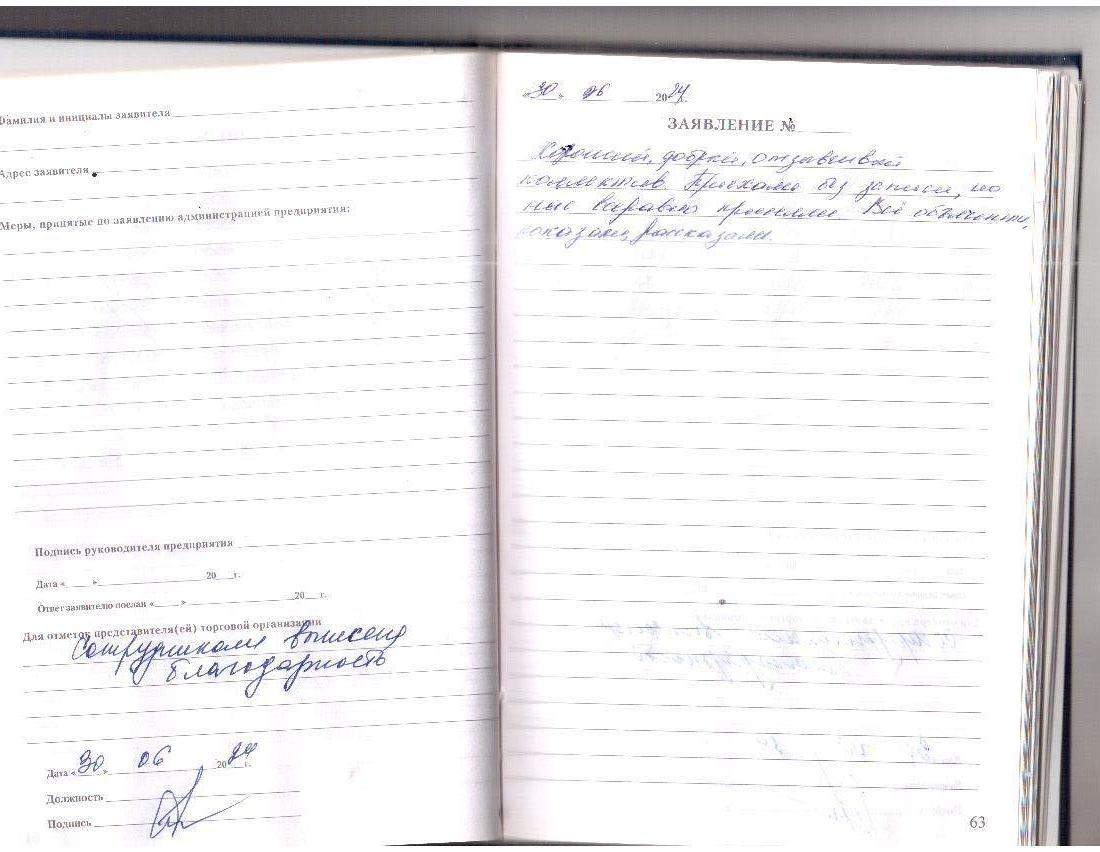 Фамилия и инициалы заявителя
Адрес заявителя
Меры, принятые по заявлению администрацией предприятия:
Подпись руководителя предприятия
Дата « » 20 г.
Ответ заявителю послан « » 20 г.
Для отметок представителя(ей) торговой организации
Сотрудникам вынесена
благодарность
Дата «30» 06 2024 г.
Должность
Подпись
«30» 06 2024 г.
ЗАЯВЛЕНИЕ №
Хороший, добрый, отзывчивый
коллектив. Приехали без записи, но
нас все равно приняли. Всё объяснили,
показали, рассказали.
63